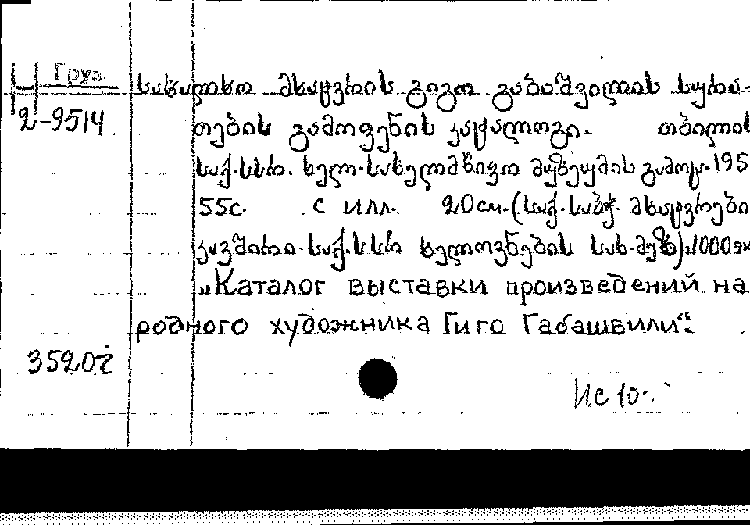 Груз.
სახალხო მხატვრის გიგო გაბაშვილის სურა-
2-9514 თების გამოფენის კატალოგი. თბილის
საქ.სსრ. ხელ. სახელმწიფო მუზეუმის გამოც. 195
55с. с илл. 20см. (საქ. საბჭ. მხატვრები
კავშირი საქ.სსრ ხელოვნების სახ. მუზ) 1000 эк
"Каталог выставки произведений на
родного художника Гиго Габашвили".
35202
Ис 10